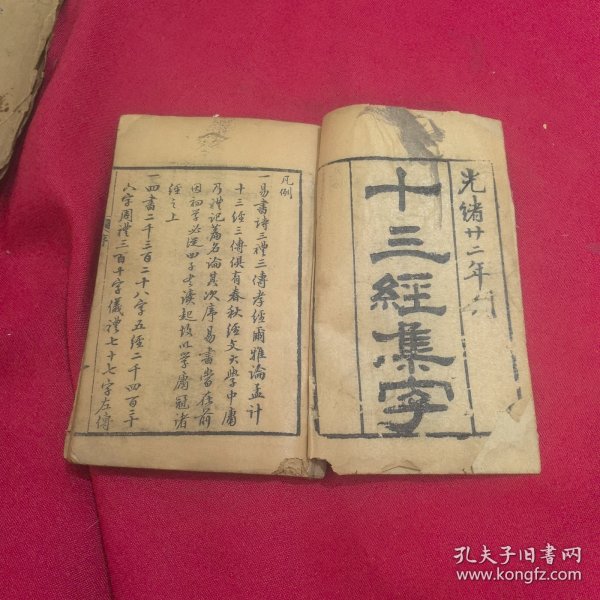 光緒廿二年刊
十三經集字
凡例
一易書詩三禮三傳孝經爾雅論孟計
十三經三傳俱有春秋經文大學中庸
乃禮記篇名論其次序易書當在前
因初學必從四子書讀起故以學庸冠諸
經之上
一四書二千三百二十八字五經二千四百三十
六字周禮三百千字儀禮七十七字左傳
孔夫子旧书网
www.kongfz.com